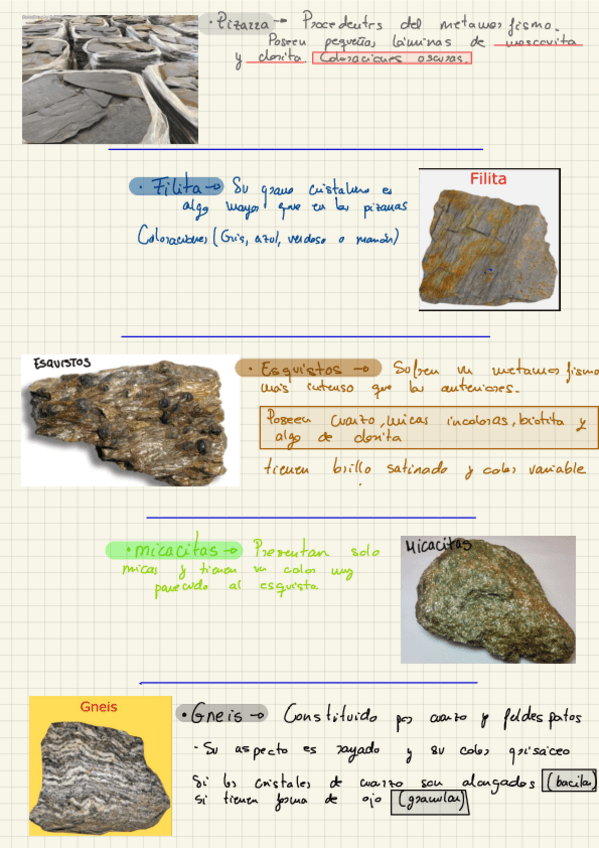 · Pizarra → Procedentes del metamorfismo.
Poseen pequeñas láminas de moscovita
y clorita. Coloraciones oscuras.
· Filita → Su grano cristalino es
algo mayor que en las pizarras
Coloraciones (Gris, azul, verdoso o marrón)
Filita
ESQUISTOS
· Esquistos → Sufren un metamorfismo
más intenso que las anteriores.
Poseen cuarzo, micas incoloras, biotita y
algo de clorita
tienen brillo satinado y color variable
· Micacitas → Presentan solo
micas y tienen un color muy
parecido al esquisto
Micacitas
Gneis
· Gneis → Constituido por cuarzo y feldespatos
- Su aspecto es rayado y su color grisáceo
Si los cristales de cuarzo son alargados (bacilar)
si tienen forma de ojo (granular)